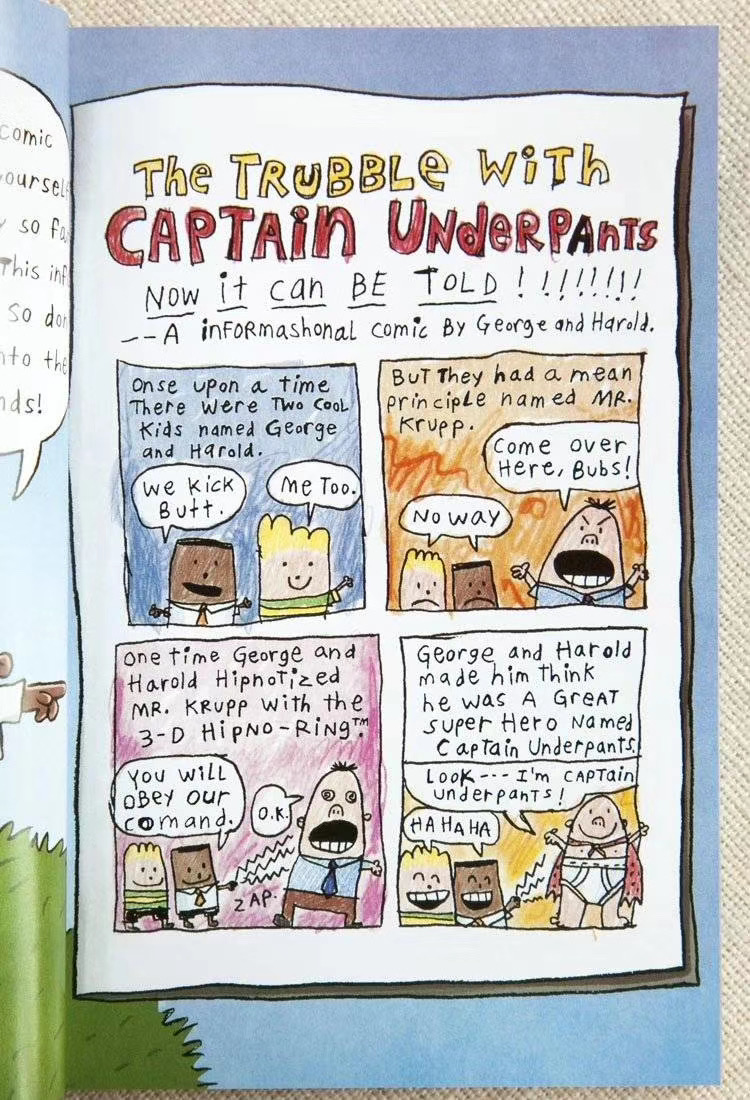 comic
ourself
so fa
This inf
So don
nto the
nds!
The TRUBBLE WiTh
CAPTAin UnderPAnTs
NOW it can BE TOLD! !!!!!!!
--A inFORmashonal comic By George and Harold.
Onse upon a time
There were Two CooL
Kids named George
and Harold.
We Kick
Butt.
Me Too.
BuT They had a mean
principle named MR.
Krupp.
Come over
Here, Bubs!
No way
One time George and
Harold Hipnotized
MR. KRUPP with the
3-D HipNo-Ring™.
You will
obey our
comand.
O.K.
ZAP.
George and Harold
made him think
he was A GreAT
super Hero Named
Captain Underpants.
Look--- I'm CAPTain
underpants!
HA HA HA